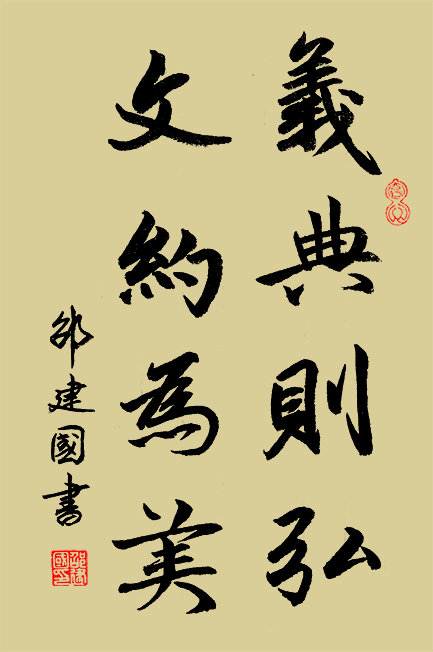 義典則弘
文約為美
邵建國書